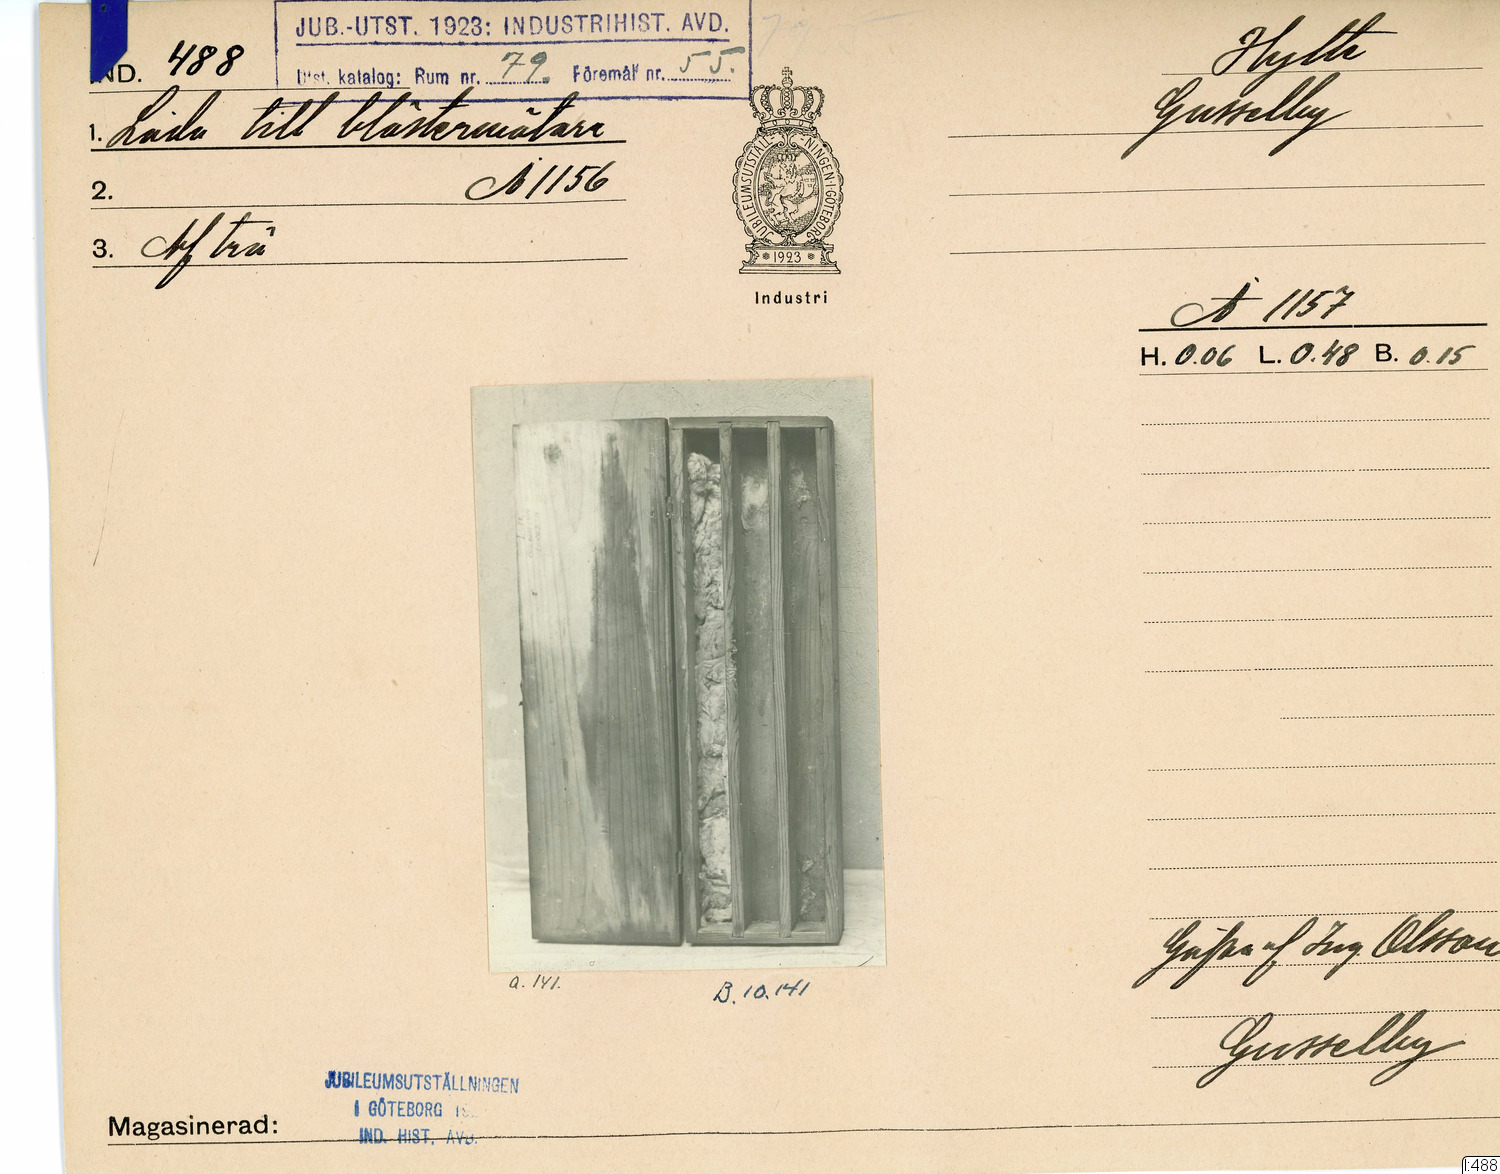 JUB.-UTST. 1923: INDUSTRIHIST. AVD.
Utst. katalog: Rum nr. 79. Föremål nr. 55.
IND. 488
1. Låda till blästermätare
2. Å 1156
3. Af trä
JUBILEUMSUTSTÄLLNINGEN I GÖTEBORG
1923
Industri
Hytte
Gusselby
Å 1157
H. 0.06 L. 0.48 B. 0.15
a. 141.
B. 10. 141
Gåfva af Ing. Olsson
Gusselby
JUBILEUMSUTSTÄLLNINGEN
I GÖTEBORG
IND. HIST. AVD.
Magasinerad:
I:488